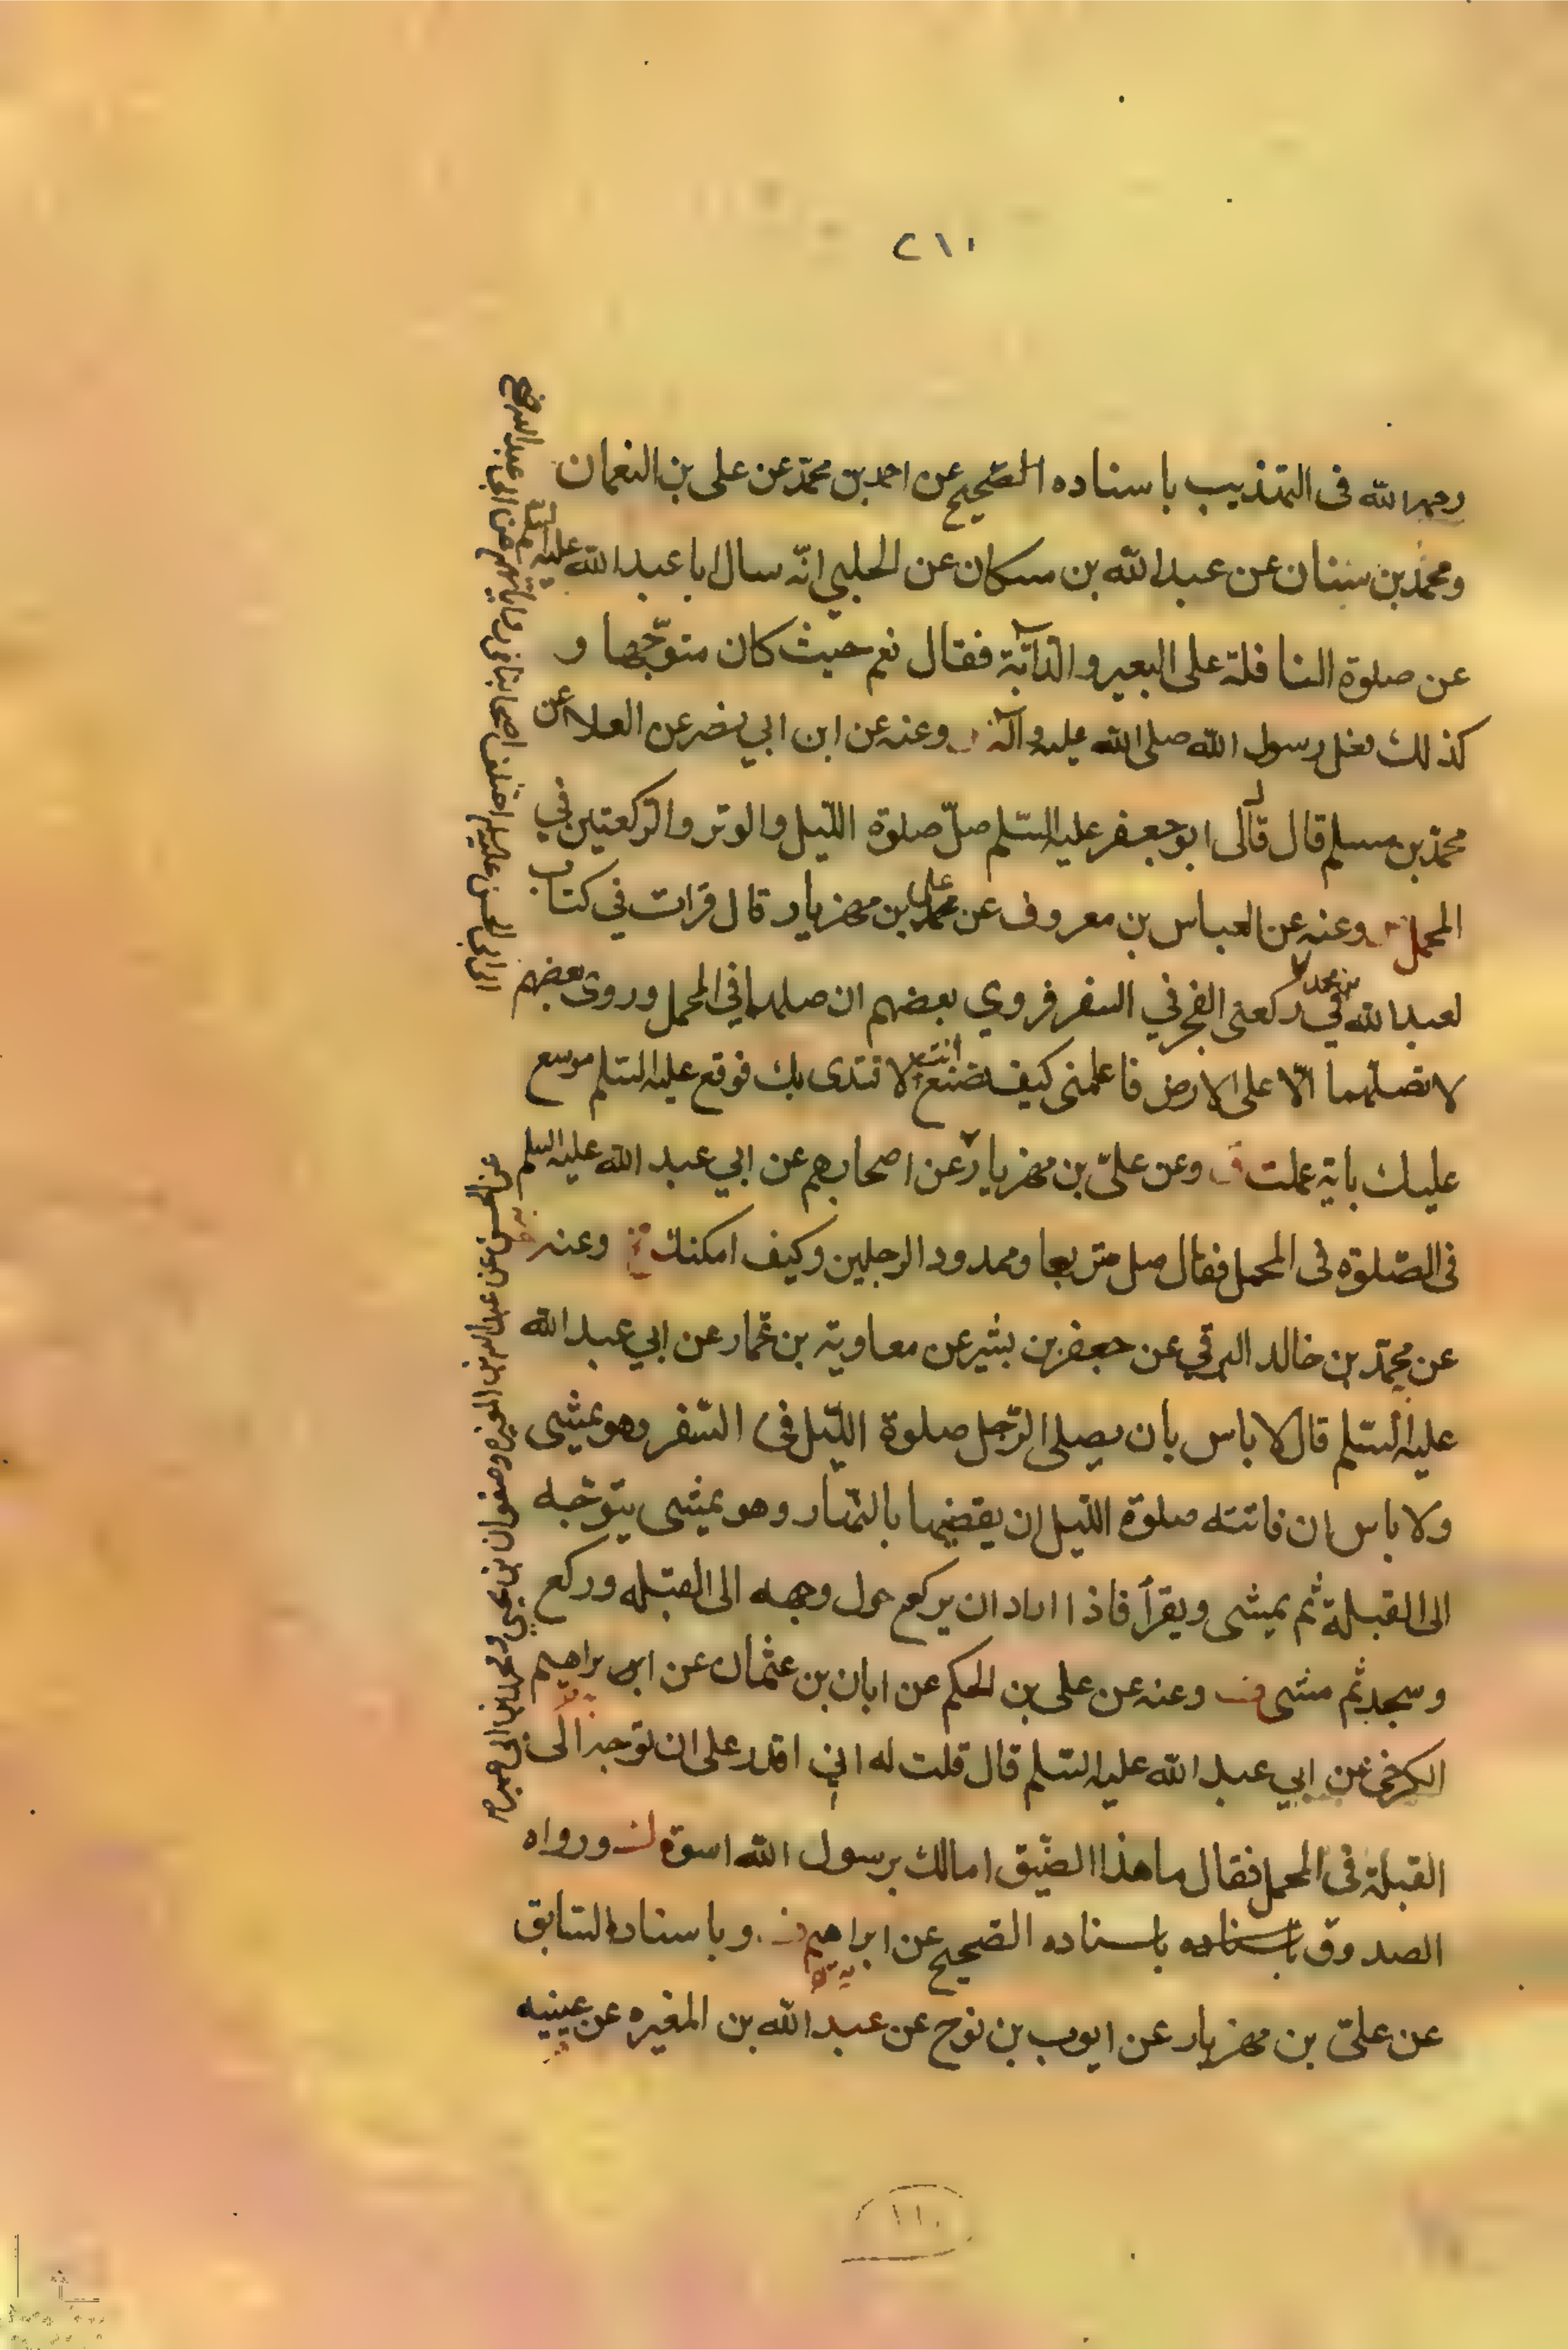 ٢١٠
رحمه الله فى التهذيب باسناده الصّحيح عن احمد بن محمّد عن على بن النعمان
ومحمّد بن سنان عن عبد الله بن مسكان عن الحلبي انّه سال ابا عبد الله عليه السّلم
عن صلوة النافلة على البعير والدّابّة فقال نعم حيث كان متوجّها و
كذلك فعل رسول الله صلى الله عليه وآله وعنه عن ابن ابي نضر عن العلا عن
محمّد بن مسلم قال قال لى ابو جعفر عليه السّلم صلّ صلوة اللّيل والوتر والرّكعتين في
المحمل وعنه عن العباس بن معروف عن على بن مهزيار قال قرات في كتاب
لعبد الله بن محمد في ركعتى الفجر في السفر فروي بعضهم ان صلهما في المحمل وروى بعضهم
لا تصلهما الّا على الارض فاعلمنى كيف تصنع انت لاقتدى بك فوقع عليه السّلم موسع
عليك باية عملت وعن علىّ بن مهزيار عن اصحابهم عن ابي عبد الله عليه السلم
فى الصّلوة فى المحمل فقال صل متربعا وممدود الرجلين وكيف امكنك وعنه
عن محمّد بن خالد البرقي عن جعفر بن بشير عن معاوية بن عمّار عن ابي عبد الله
عليه السّلم قال لا باس بان يصلى الرّجل صلوة اللّيل فى السّفر وهو يمشى
ولا باس ان فاتته صلوة اللّيل ان يقضيها بالنّهار وهو يمشى يتوجّه
الى القبلة ثم يمشى ويقرأ فاذا اراد ان يركع حول وجهه الى القبله وركع
وسجد ثم مشى وعنه عن على بن الحكم عن ابان بن عثمان عن ابراهيم
الكرخى عن ابي عبد الله عليه السّلم قال قلت له اني اقدر على ان توجه الى
القبلة فى المحمل فقال ما هذا الضّيق امالك برسول الله اسوة ورواه
الصدوق باسناده باسناده الصّحيح عن ابراهيم وباسناده السّابق
عن علىّ بن مهزيار عن ايوب بن نوح عن عبد الله بن المغيره عن عيينه
عن الحسين عن عبد الله بن المغيره وصفوان بن يحيى ومحمد بن ابى عمير
١١٠